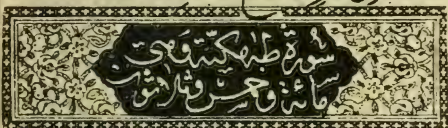 سورة طه مكية وهي
مائة وخمس وثلاثون